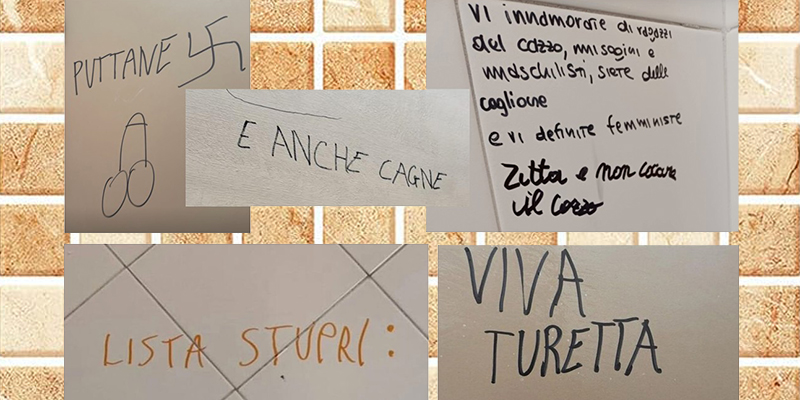 PUTTANE
E ANCHE CAGNE
VI innamorate di ragazzi
del cazzo, misogini e
maschilisti, siete delle
coglione
e vi definite femministe
Zitta e non cacare
il cazzo
LISTA STUPRI:
VIVA
TURETTA